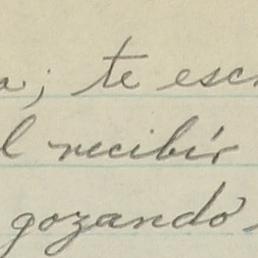 a; te esc
l recibir
gozando